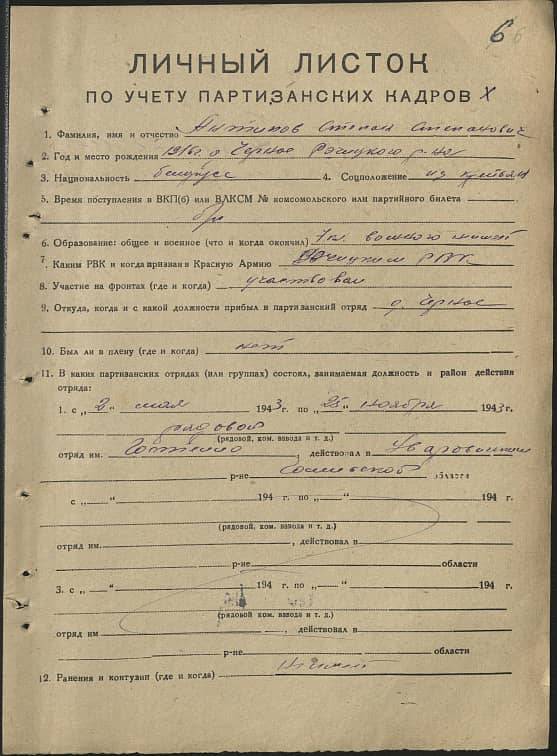 6 6
ЛИЧНЫЙ ЛИСТОК
ПО УЧЕТУ ПАРТИЗАНСКИХ КАДРОВ
1. Фамилия, имя и отчество Антипов Степан Степанович
2. Год и место рождения 1916 г. д. Черное Речицкого р-на
3. Национальность белорус 4. Соцположение из крестьян
5. Время поступления в ВКП(б) или ВЛКСМ № комсомольского или партийного билета
б/п
6. Образование: общее и военное (что и когда окончил) 7 кл.
7. Каким РВК и когда призван в Красную Армию Речицким РВК
8. Участие на фронтах (где и когда) участвовал
9. Откуда, когда и с какой должности прибыл в партизанский отряд д. Черное
10. Был ли в плену (где и когда) нет
11. В каких партизанских отрядах (или группах) состоял, занимаемая должность и район действия
отряда:
1. с „2“ мая 1943 г. по „25“ ноября 1943 г.
рядовой
(рядовой, ком. взвода и т. д.)
отряд им. , действовал в Уваровичском
р-не Гомельской области
с „ “ 194 г. по „ “ 194 г.
(рядовой, ком. взвода и т. д.)
отряд им. , действовал в
р-не области
3. с „ “ 194 г. по „ “ 194 г.
(рядовой, ком. взвода и т. д.)
отряд им. , действовал в
р-не области
12. Ранения и контузии (где и когда)